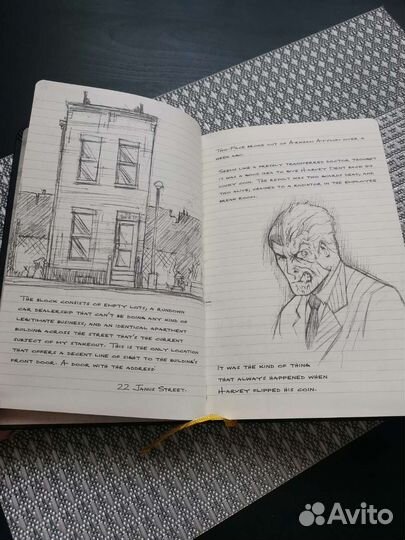 The block consists of empty lots, a rundown
car dealership that can't be doing any kind of
legitimate business, and an identical apartment
building across the street that's the current
subject of my stakeout. This is the only location
that offers a decent line of sight to the building's
front door. A door with the address
22 Janus Street.
Two-Face broke out of Arkham Asylum over a
week ago.
Seems like a freshly transferred doctor thought
it was a good idea to give Harvey Dent back his
lucky coin. The result was two guards dead, and
two alive, chained to a radiator in the employee
break room.
It was the kind of thing
that always happened when
Harvey flipped his coin.
Avito